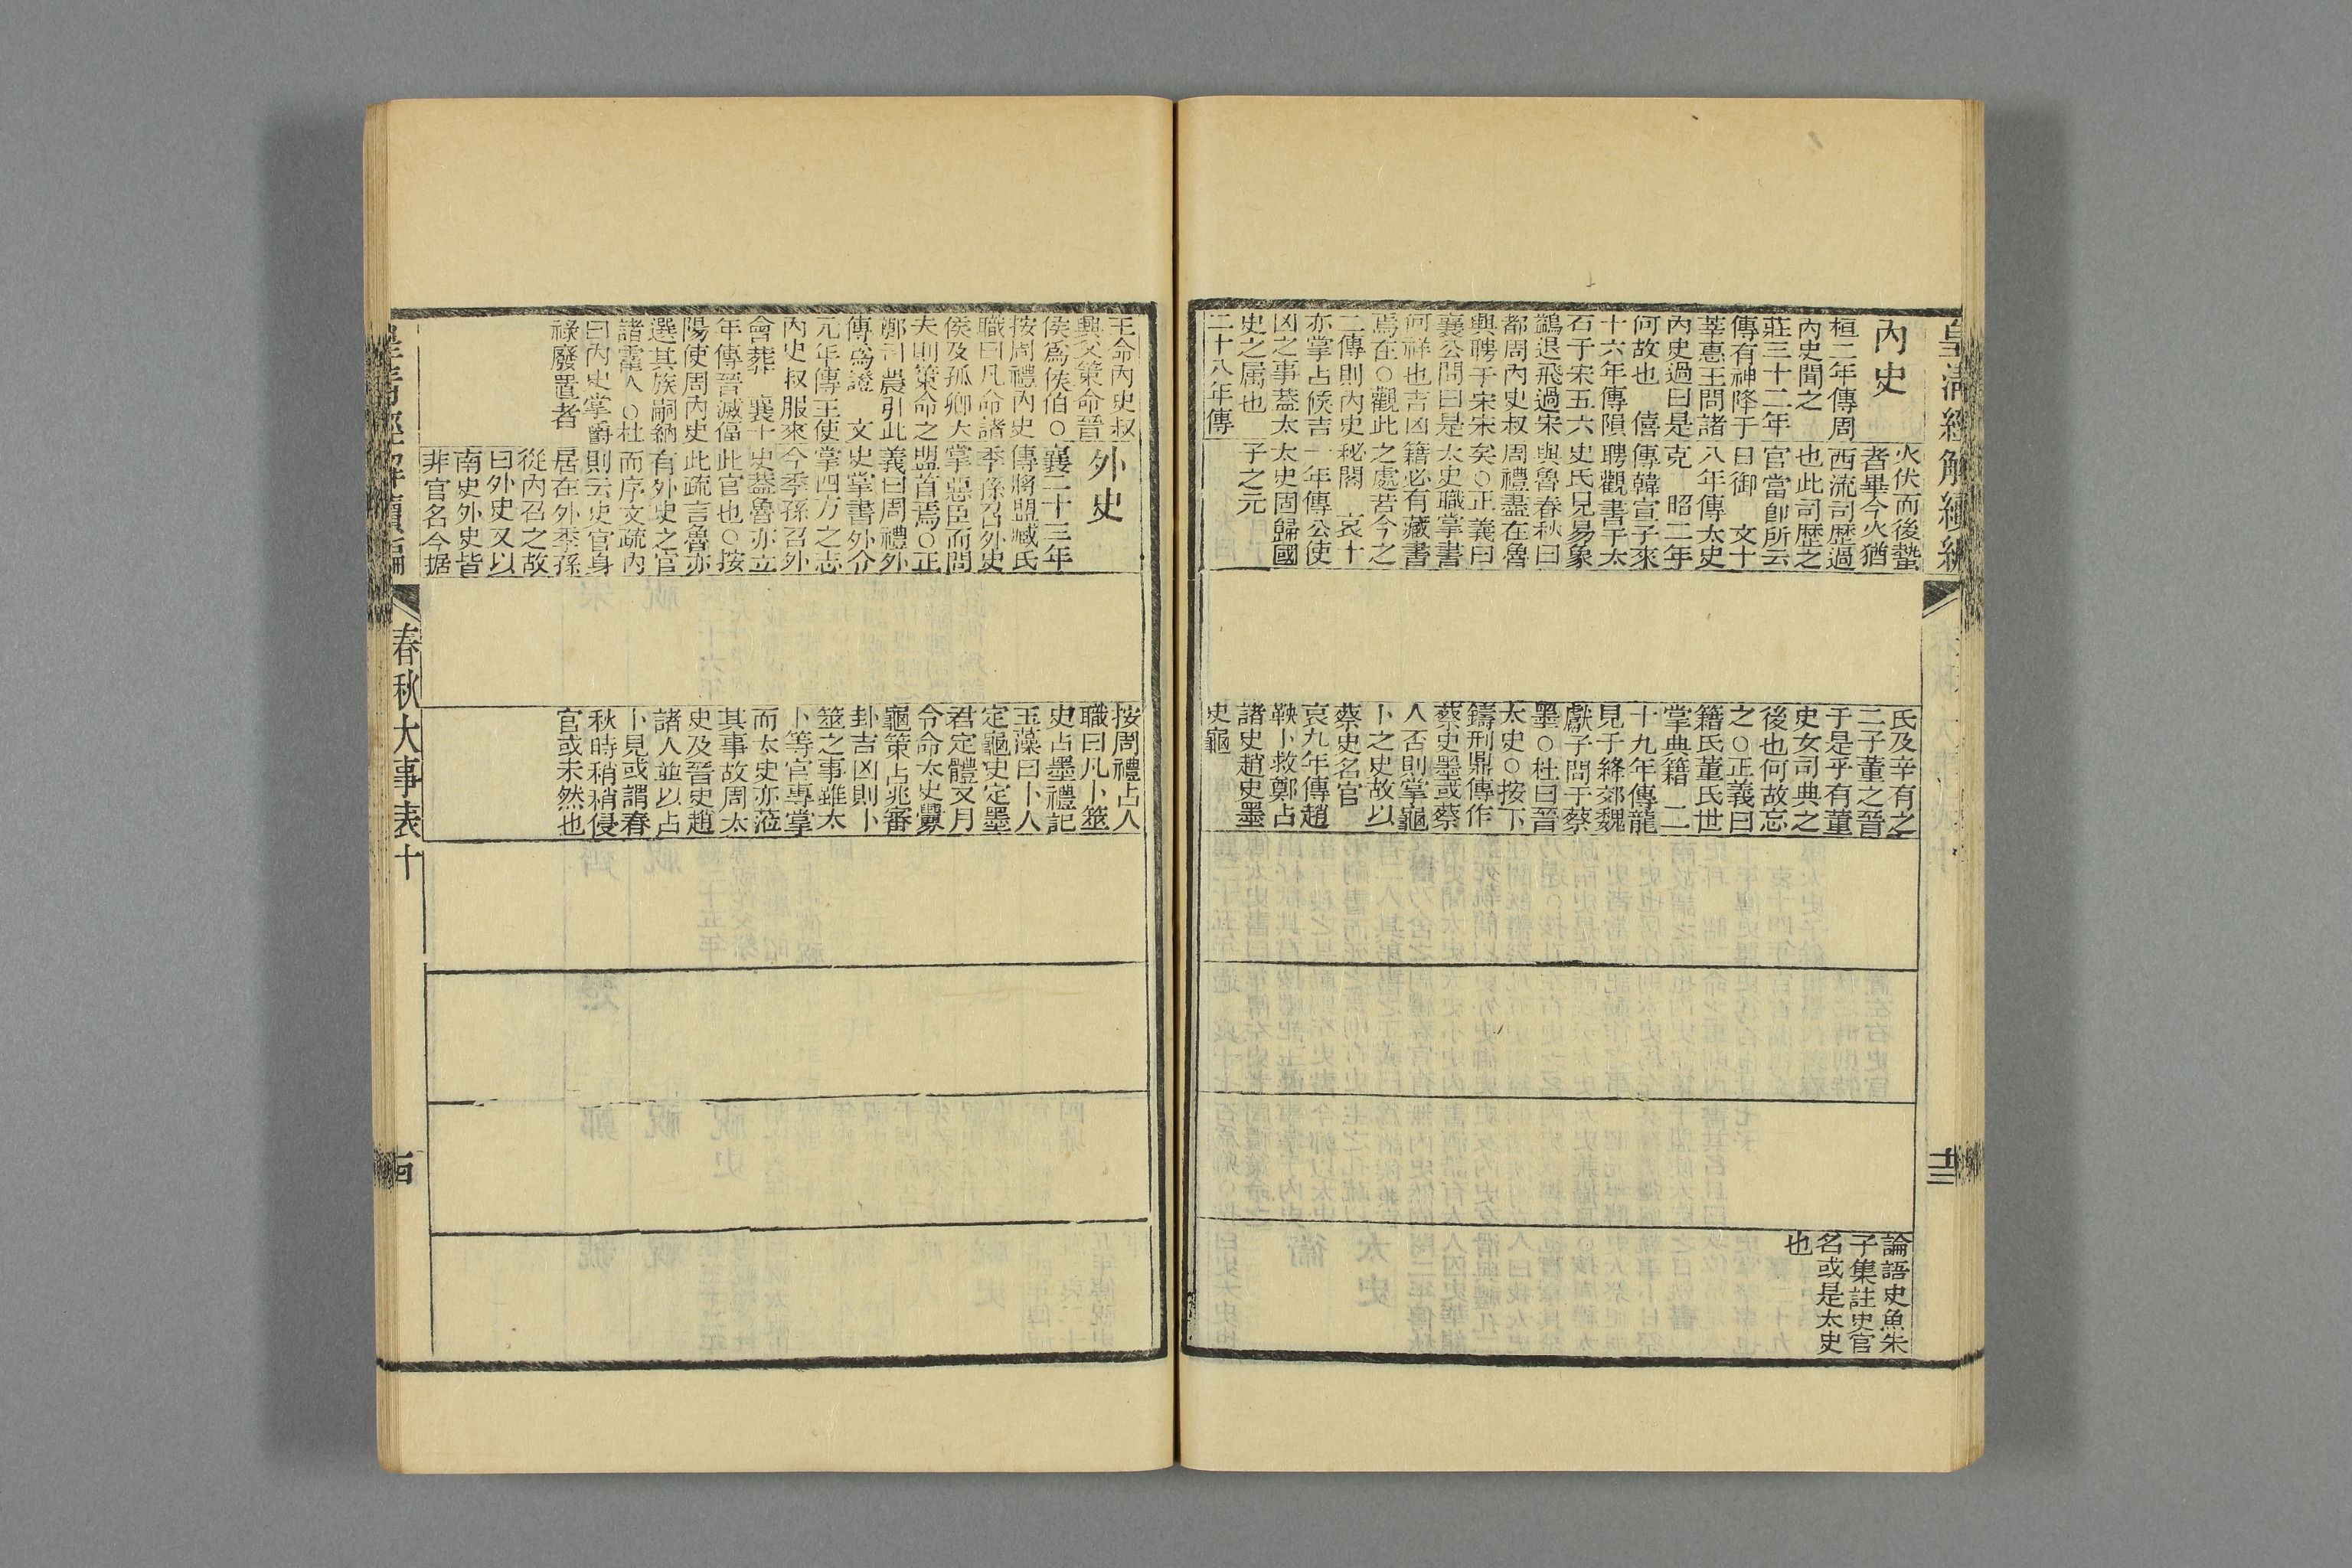 皇清經解續編
內史
桓二年傳周
內史聞之
莊三十二年
傳有神降于
莘惠王問諸
內史過曰是
何故也 僖
十六年傳隕
石于宋五六
鷁退飛過宋
都周內史叔
興聘于宋宋
襄公問曰是
何祥也吉凶
焉在○觀此
二傳則內史
亦掌占候吉
凶之事蓋太
史之属也
二十八年傳
火伏而後蟄
者畢今火猶
西流司歴過
也此司歴之
官當卽所云
日御 文十
八年傳太史
克 昭二年
傳韓宣子來
聘觀書于太
史氏見易象
與魯春秋曰
周禮盡在魯
矣○正義曰
太史職掌書
籍必有藏書
之處若今之
秘閣 哀十
一年傳公使
太史固歸國
子之元
氏及辛有之
二子董之晉
于是乎有董
史女司典之
後也何故忘
之○正義曰
籍氏董氏世
掌典籍 二
十九年傳龍
見于絳郊魏
獻子問于蔡
墨○杜曰晉
太史○按下
鑄刑鼎傳作
蔡史墨或蔡
人否則掌龜
卜之史故以
蔡史名官
哀九年傳趙
鞅卜救鄭占
諸史趙史墨
史龜
論語史魚朱
子集註史官
名或是太史
也
十三
王命內史叔
興父策命晉
侯爲侯伯○
按周禮內史
職曰凡命諸
侯及孤卿大
夫則策命之
鄭司農引此
傳爲證 文
元年傳王使
內史叔服來
會葬 襄十
年傳晉滅偪
陽使周內史
選其族嗣納
諸霍人○杜
曰內史掌爵
祿廢置者
外史
襄二十三年
傳將盟臧氏
季孫召外史
掌惡臣而問
盟首焉○正
義曰周禮外
史掌書外令
掌四方之志
今季孫召外
史蓋魯亦立
此官也○按
此疏言魯亦
有外史之官
而序文疏內
則云史官身
居在外季孫
從內召之故
曰外史又以
南史外史皆
非官名今据
按周禮占人
職曰凡卜筮
史占墨禮記
玉藻曰卜人
定龜史定墨
君定體又月
令命太史釁
龜策占兆審
卦吉凶則卜
筮之事雖太
卜等官專掌
而太史亦涖
其事故周太
史及晉史趙
諸人並以占
卜見或謂春
秋時稍稍侵
官或未然也
皇清經解續編
春秋大事表十